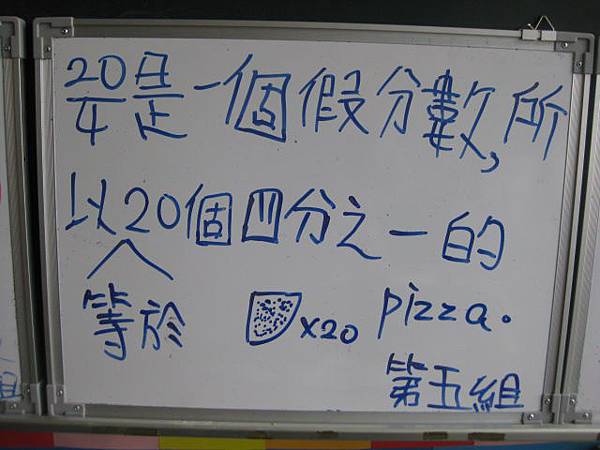 20/4是一個假分數,所
以20個四分之一的
等於 x20 pizza。
第五組